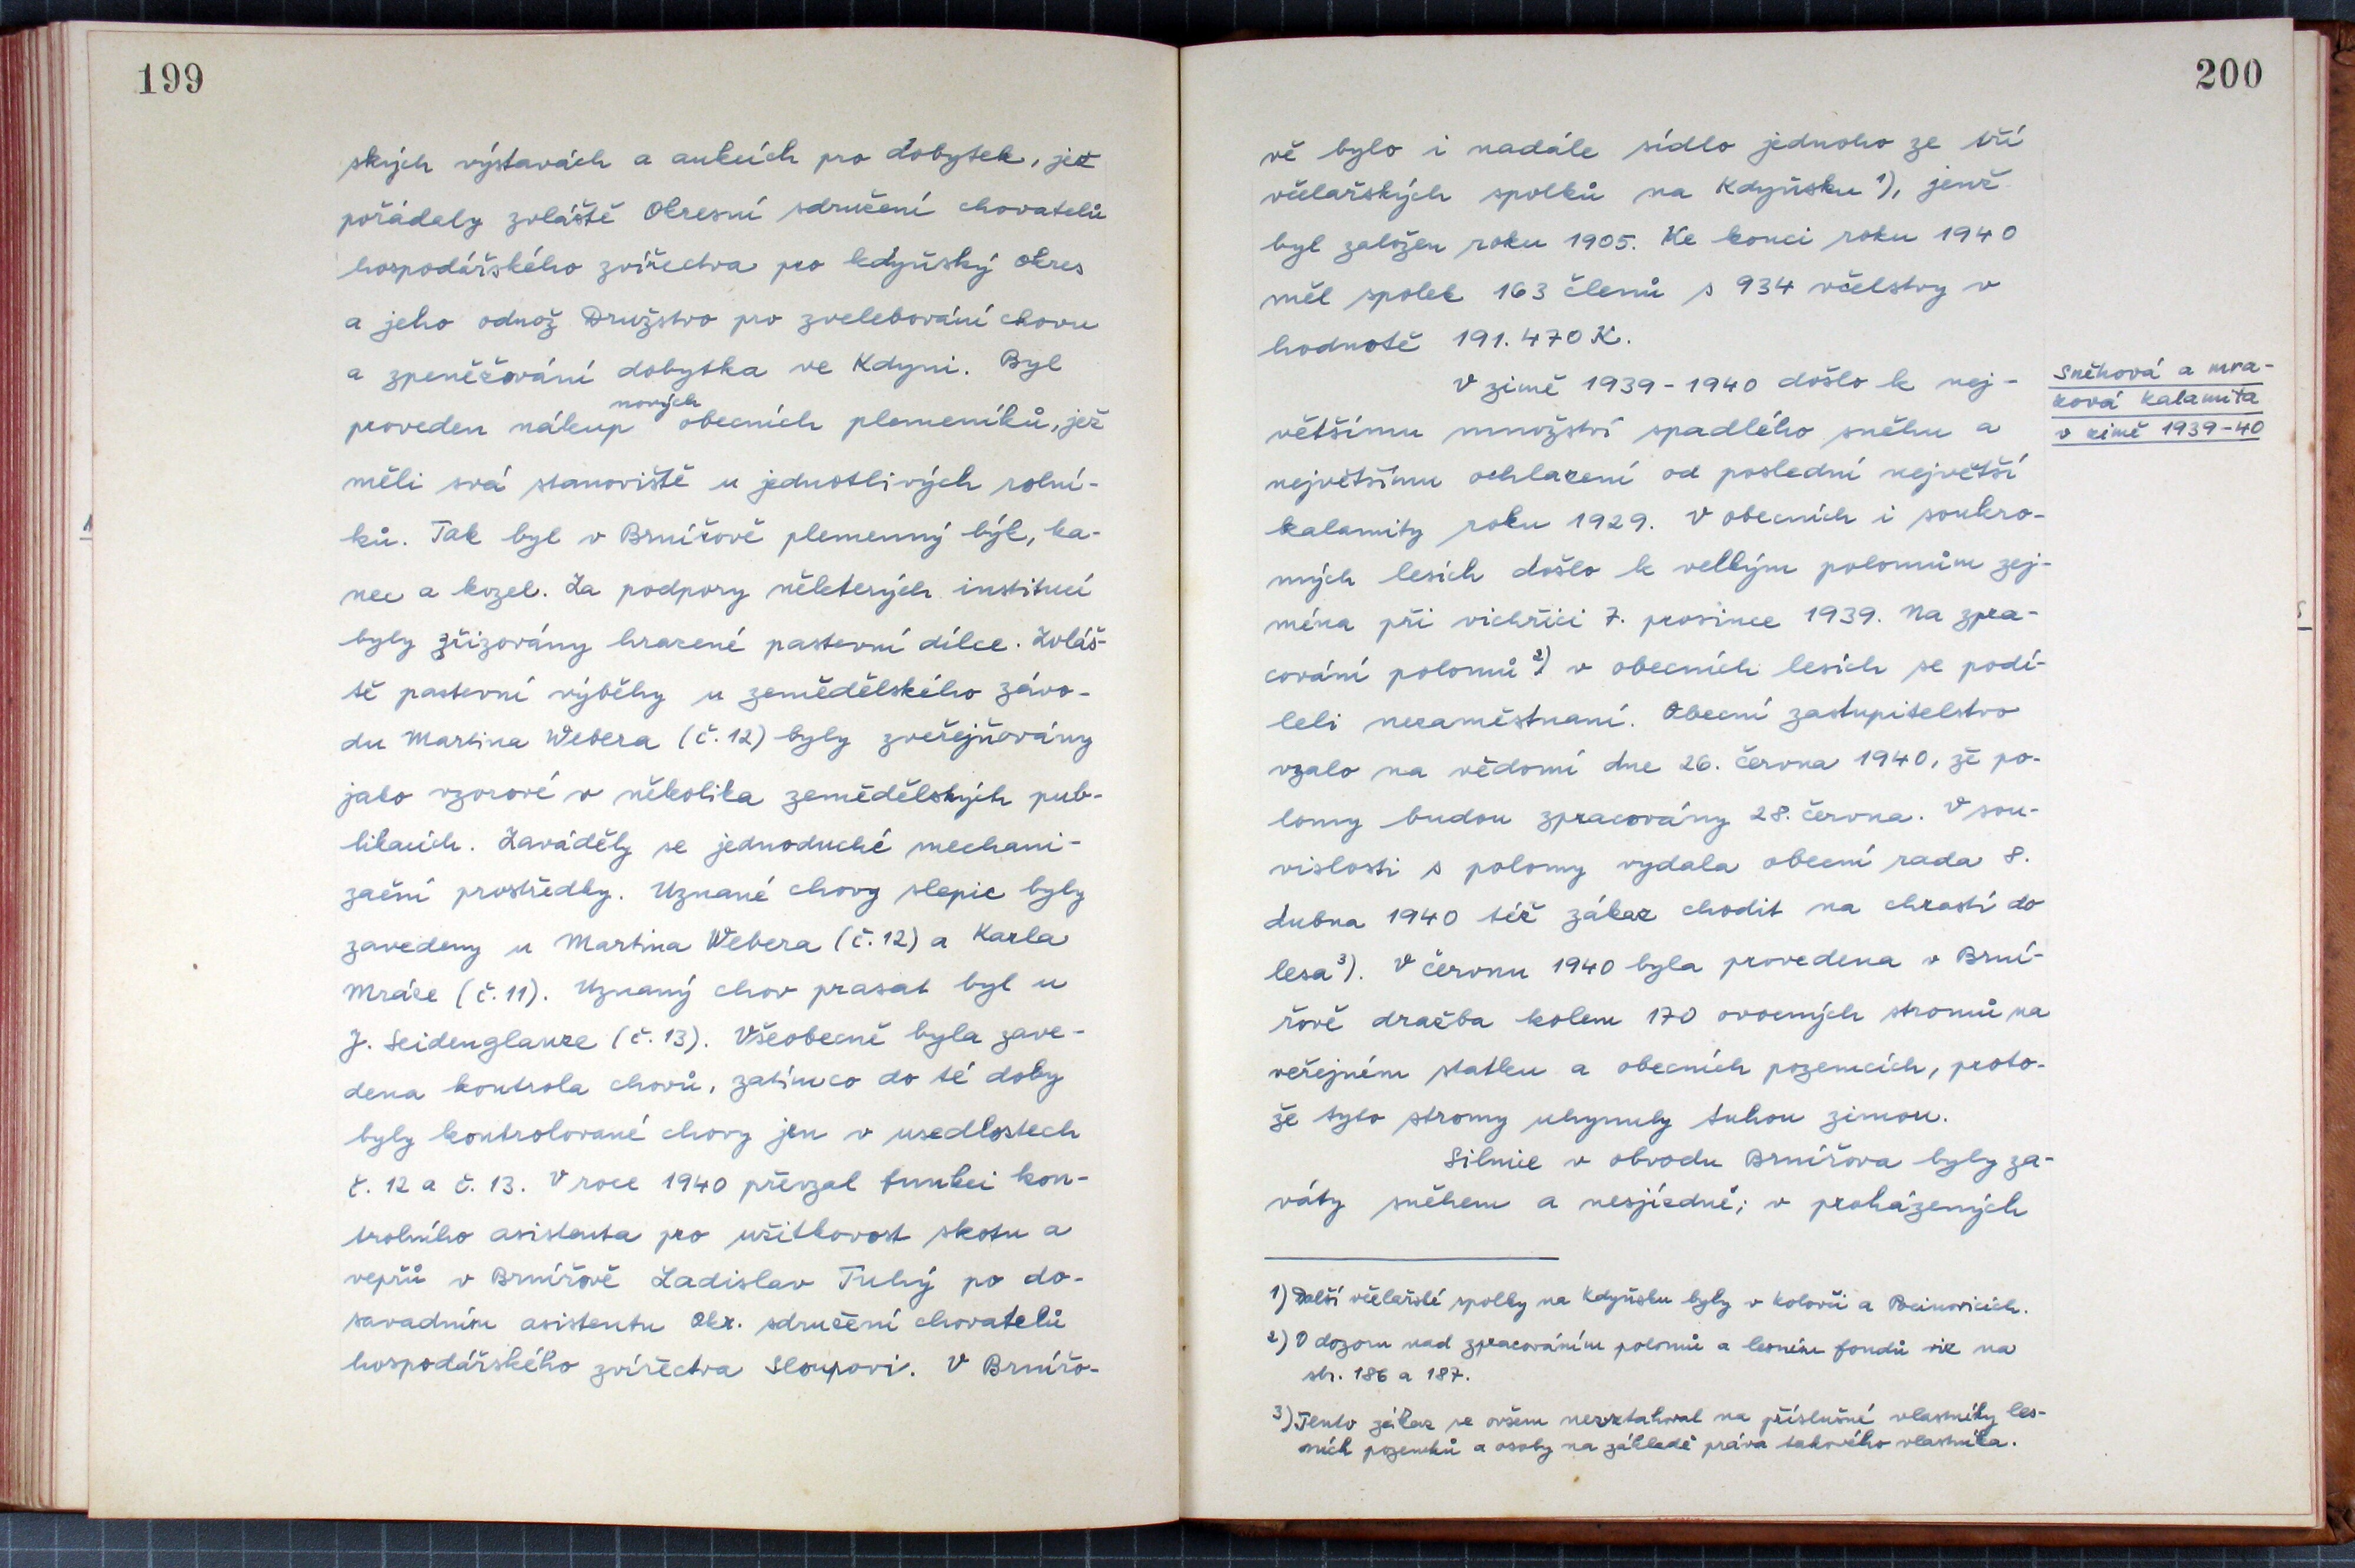 199
ských výstavách a aukcích pro dobytek, jež
pořádaly zvláště Okresní sdružení chovatelů
hospodářského zvířectva pro kdyňský okres
a jeho odnož Družstvo pro zvelebování chovu
a zpeněžování dobytka ve Kdyni. Byl
nových
proveden nákup obecních plemeníků, jež
měli svá stanoviště u jednotlivých rolní-
ků. Tak byl v Brnířově plemenný býk, ka-
nec a kozel. Za podpory některých institucí
byly zřizovány hrazené pastevní dílce. Zvláš-
tě pastevní výběhy u zemědělského závo-
du Martina Webera (č. 12) byly zveřejňovány
jako vzorové v několika zemědělských pub-
likacích. Zaváděly se jednoduché mechani-
zační prostředky. Uznané chovy slepic byly
zavedeny u Martina Webera (č. 12) a Karla
Mráze (č. 11). Uznaný chov prasat byl u
J. Seidenglanze (č. 13). Všeobecně byla zave-
dena kontrola chovů, zatímco do té doby
byly kontrolované chovy jen v usedlostech
č. 12 a č. 13. V roce 1940 převzal funkci kon-
trolního asistenta pro užitkovost skotu a
vepřů v Brnířově Ladislav Tuhý po do-
savadním asistentu Okr. sdružení chovatelů
hospodářského zvířectva Sloupovi. V Brnířo-
200
vě bylo i nadále sídlo jednoho ze tří
včelařských spolků na Kdyňsku 1), jenž
byl založen roku 1905. Ke konci roku 1940
měl spolek 163 členů s 934 včelstvy v
hodnotě 191.470 K.
V zimě 1939-1940 došlo k nej-
většímu množství spadlého sněhu a
největšímu ochlazení od poslední největší
kalamity roku 1929. V obecních i soukro-
mých lesích došlo k velkým polomům zej-
ména při vichřici 7. prosince 1939. Na zpra-
cování polomů 2) v obecních lesích se podí-
leli nezaměstnaní. Obecní zastupitelstvo
vzalo na vědomí dne 26. června 1940, že po-
lomy budou zpracovány 28. června. V sou-
vislosti s polomy vydala obecní rada 8.
dubna 1940 též zákaz chodit na chrastí do
lesa 3). V červnu 1940 byla provedena v Brní-
řově dražba kolem 170 ovocných stromů na
veřejném statku a obecních pozemcích, proto-
že tyto stromy uhynuly tuhou zimou.
Silnice v obvodu Brnířova byly za-
váty sněhem a nesjízdné; v proházených
Sněhová a mra-
zová kalamita
v zimě 1939-40
1) Další včelařské spolky na Kdyňsku byly v Kolovči a Pocinovicích.
2) O dozoru nad zpracováním polomů a lesním fondů viz na
str. 186 a 187.
3) Tento zákaz se ovšem nevztahoval na příslušné vlastníky les-
ních pozemků a osoby na základě práva takového vlastníka.